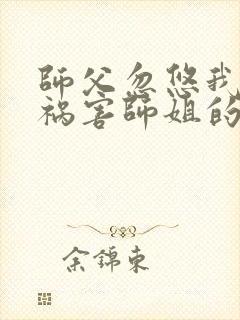 師父忽悠我
禍害師姐的
余錦東